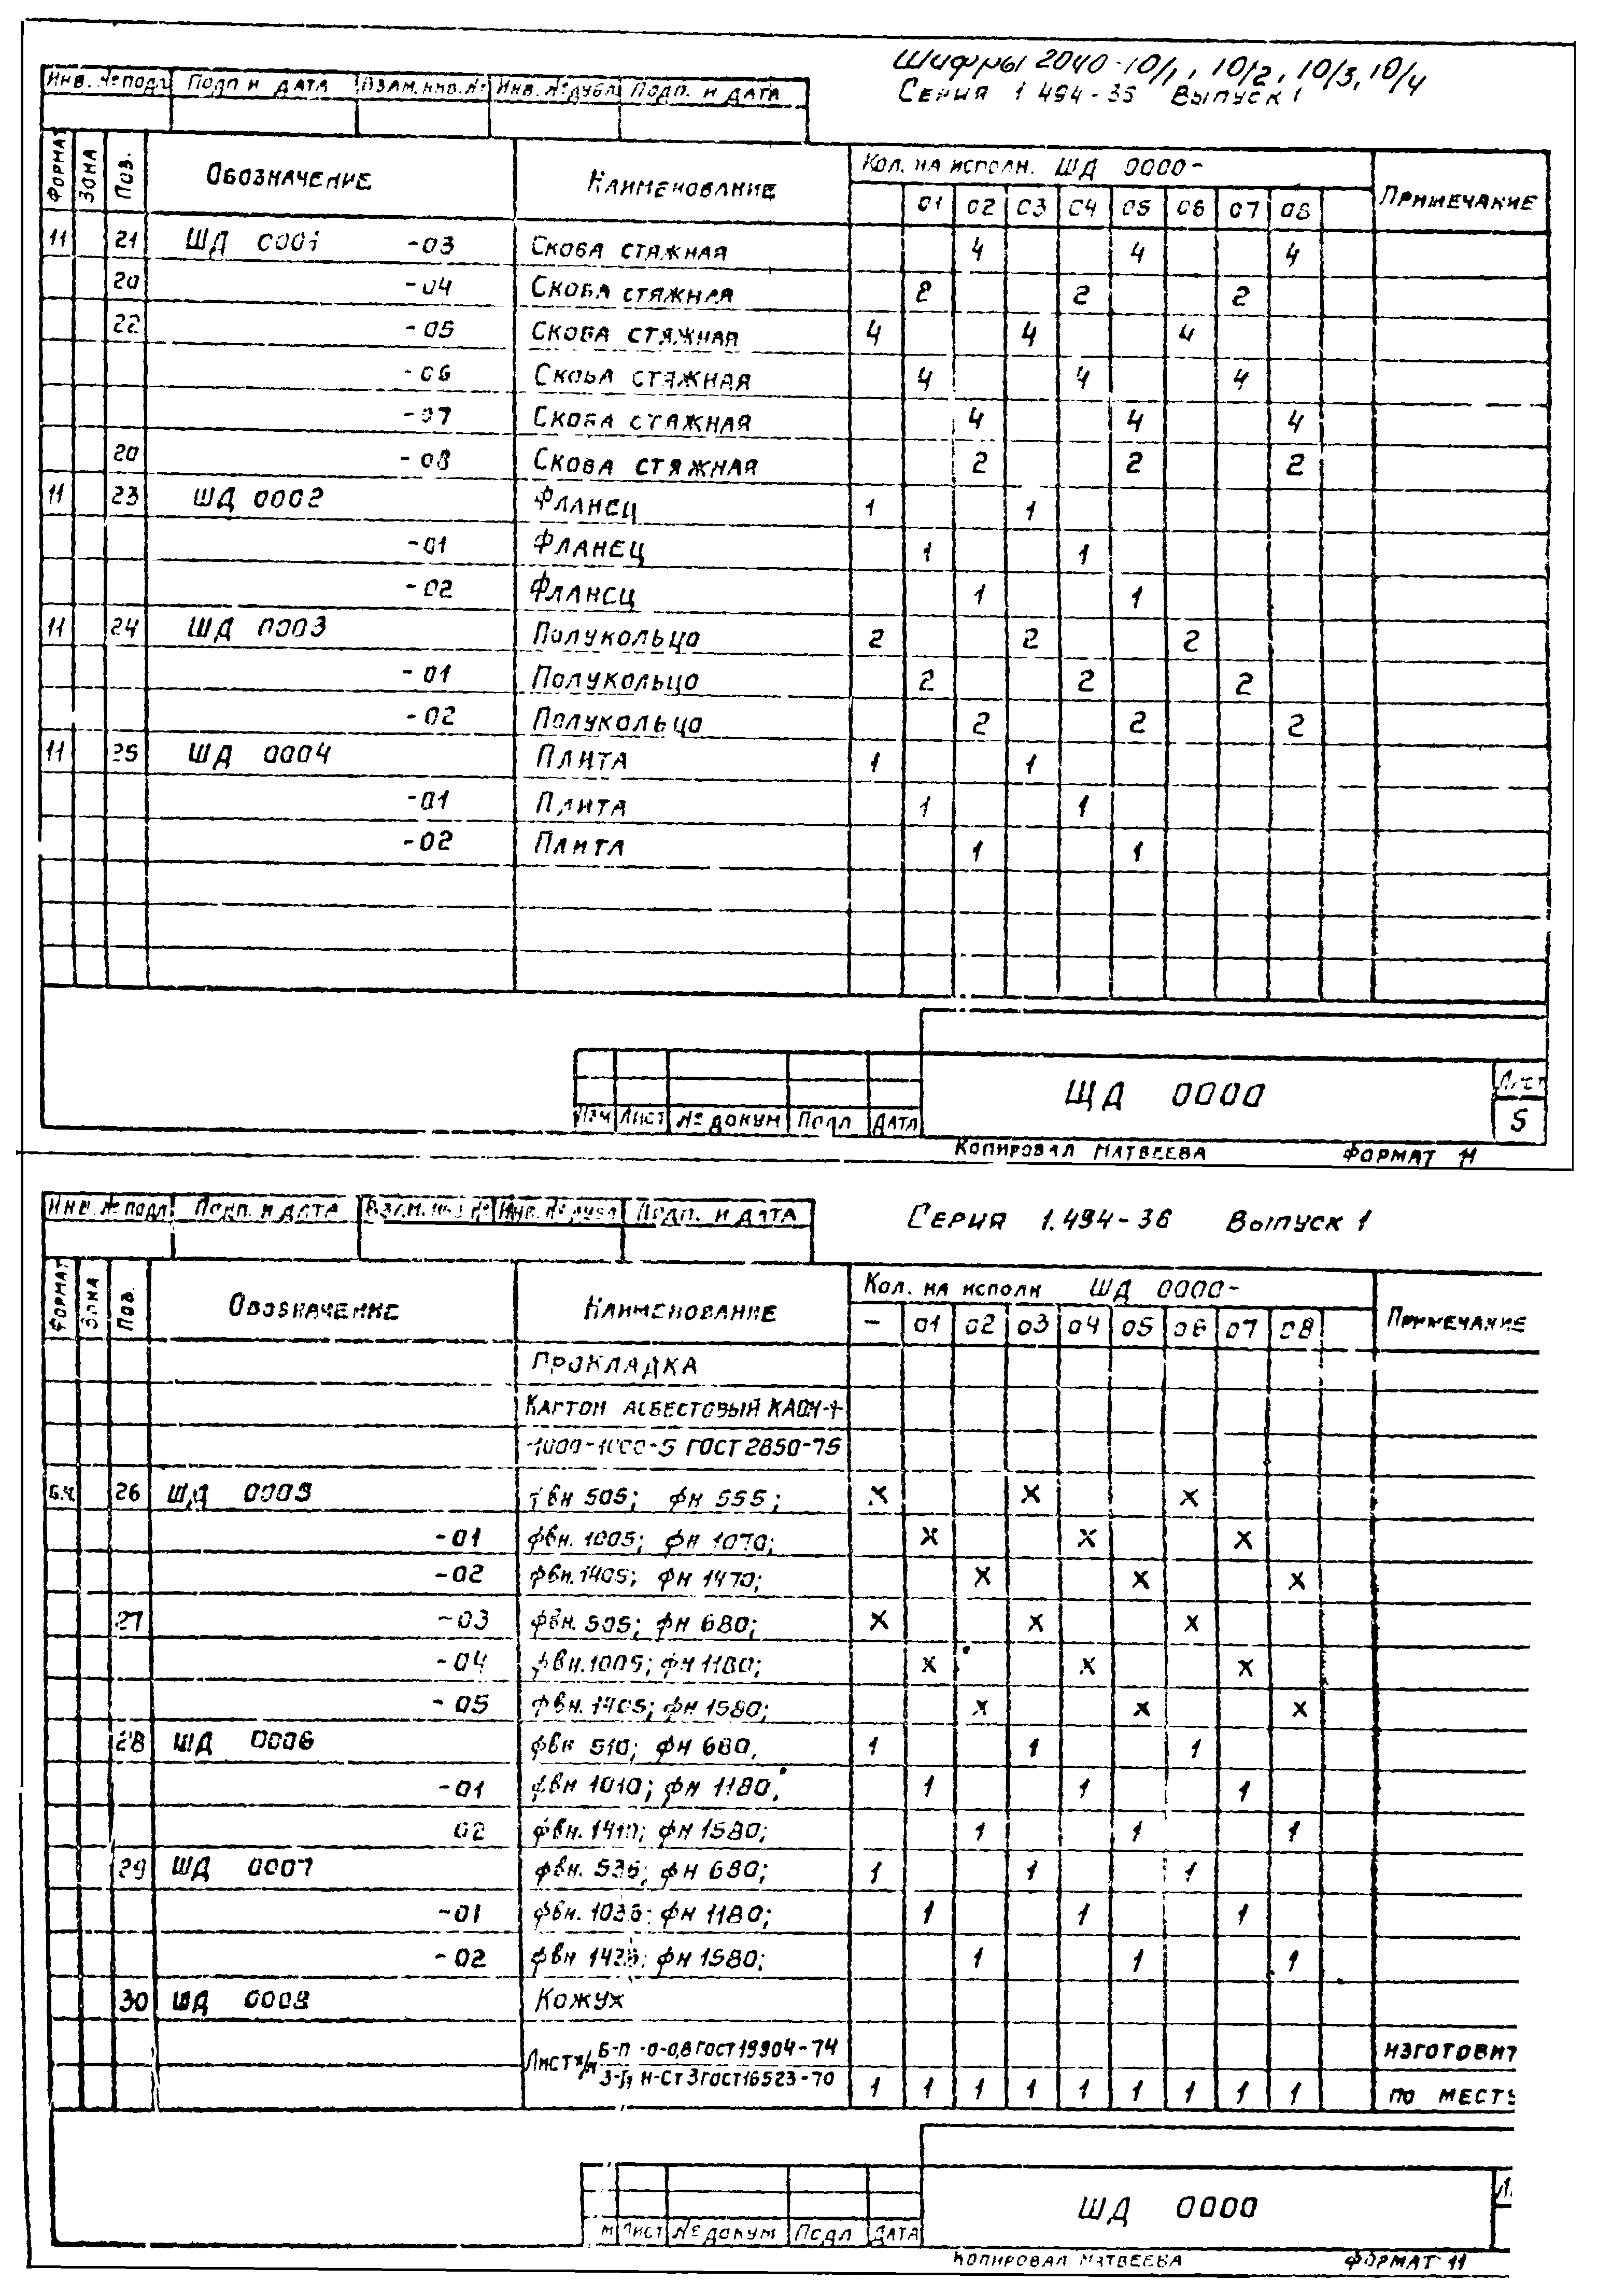 Шифры 2040-10/1, 10/2, 10/3, 10/4
Серия 1 494-36 Выпуск 1
Инв. № подл Подп и дата Взам. инв. № Инв. № дубл Подп. и дата
Формат Зона Поз. Обозначение Наименование Кол. на исполн. ШД 0000- Примечание
01 02 03 04 05 06 07 08
11 21 ШД 0001 -03 Скоба стяжная 4 4 4
20 -04 Скоба стяжная 2 2 2
22 -05 Скоба стяжная 4 4 4
-06 Скоба стяжная 4 4 4
-07 Скоба стяжная 4 4 4
20 -08 Скоба стяжная 2 2 2
11 23 ШД 0002 Фланец 1 1
-01 Фланец 1 1
-02 Фланец 1 1
11 24 ШД 0003 Полукольцо 2 2 2
-01 Полукольцо 2 2 2
-02 Полукольцо 2 2 2
11 25 ШД 0004 Плита 1 1
-01 Плита 1 1
-02 Плита 1 1
ШД 0000
Лист
5
Изм Лист № докум Подп Дата
Копировал Матвеева Формат 11
Инв. № подл Подп. и дата Взам. инв № Инв. № дубл Подп. и дата
Серия 1.494-36 Выпуск 1
Формат Зона Поз. Обозначение Наименование Кол. на исполн ШД 0000- Примечание
- 01 02 03 04 05 06 07 08
Прокладка
Картон асбестовый КАОН-1-
-1000-1000-5 ГОСТ 2850-75
Б.ч. 26 ШД 0005 фвн 505; фн 555; х х х
-01 фвн. 1005; фн 1070; х х х
-02 фвн. 1405; фн 1470; х х х
27 -03 фвн. 505; фн 680; х х х
-04 фвн. 1005; фн 1180; х х х
-05 фвн. 1405; фн 1580; х х х
28 ШД 0006 фвн 510; фн 680, 1 1 1
-01 фвн 1010; фн 1180; 1 1 1
02 фвн. 1410; фн 1580; 1 1 1
29 ШД 0007 фвн. 536; фн 680; 1 1 1
-01 фвн. 1036; фн 1180; 1 1 1
-02 фвн 1436; фн 1580; 1 1 1
30 ШД 0008 Кожух
Лист х/к Б-П -0-0,8 ГОСТ 19904-74 изготовит
3-IV Н-Ст 3 ГОСТ 16523-70 1 1 1 1 1 1 1 1 1 по месту
ШД 0000
м Лист № докум Подп Дата
Копировал Матвеева Формат 11